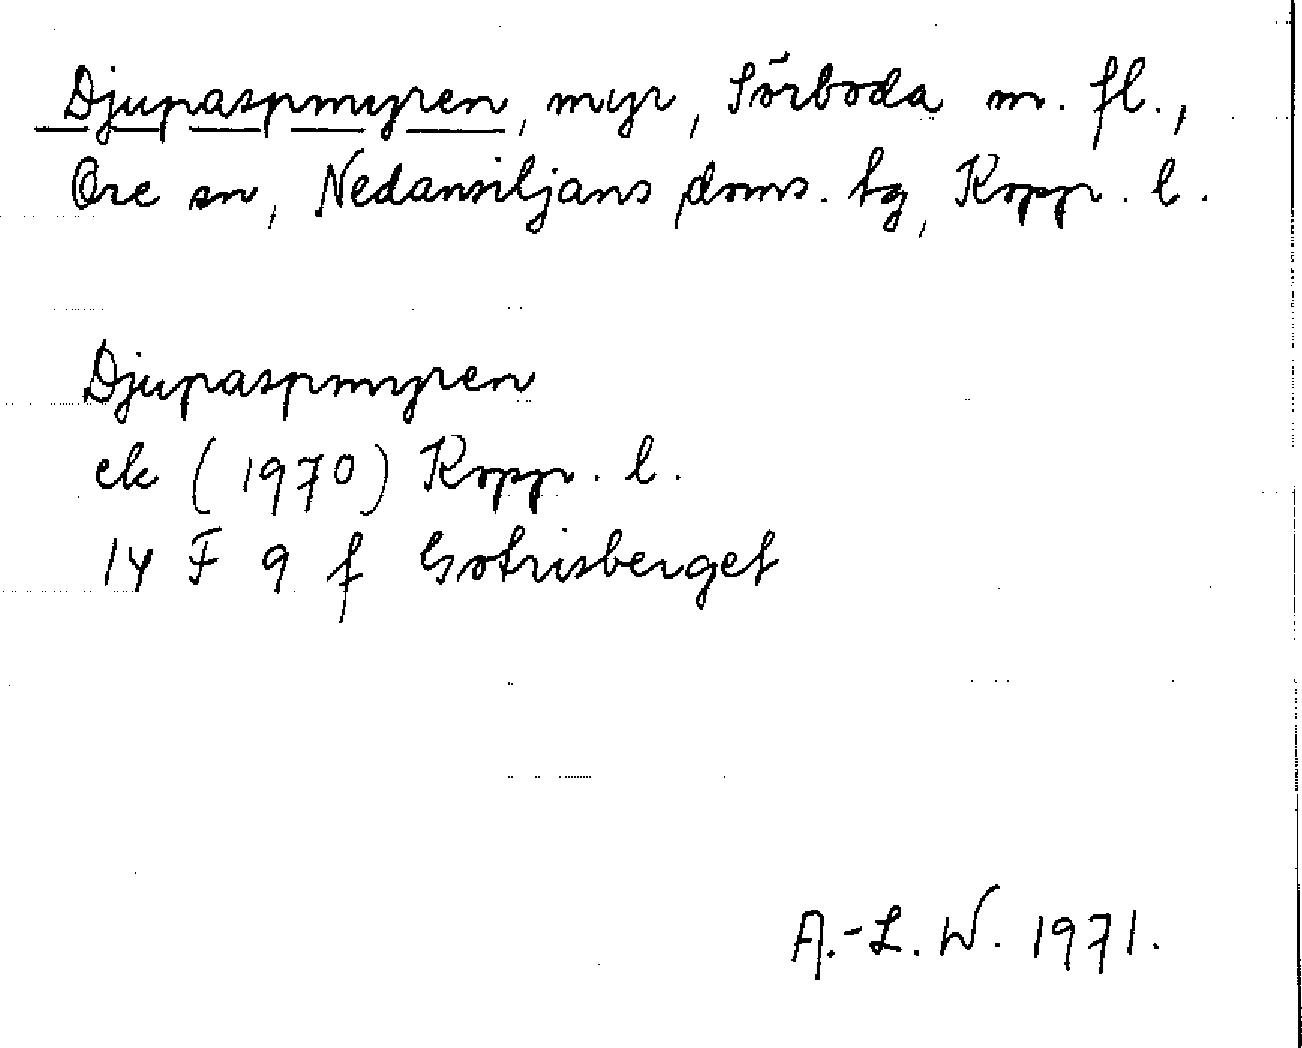 Djupaspmyren, myr, Sörboda m. fl.,
Ore sn, Nedansiljans doms. tg, Kopp. l.
Djupaspmyren
ek (1970) Kopp. l.
14 F 9 f Gotrisberget
A.-L. W. 1971.